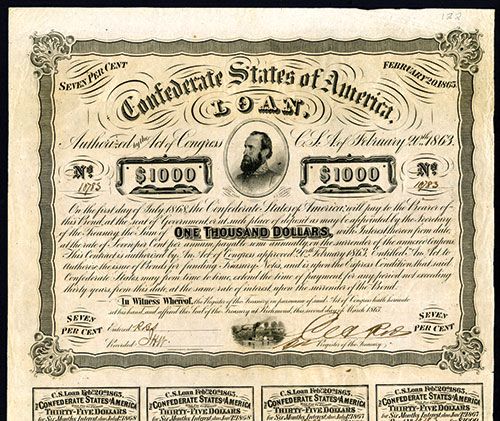 122
SEVEN PER CENT
FEBRUARY 20, 1863.
Confederate States of America
LOAN,
Authorized by the Act of Congress C.S.A. of February 20th 1863.
No 10783 $1000 $1000 No 10783
On the first day of July 1868, the Confederate States of America, will pay to the Bearer of
this Bond, at the seat of Government, or at such place of deposit as may be appointed by the Secretary
of the Treasury, the Sum of ONE THOUSAND DOLLARS, with Interest thereon from date
at the rate of Seven per Cent per annum, payable semi annually, on the surrender of the annexed Coupons.
This Contract is authorized by An Act of Congress approved 20th February 1863, Entitled "An Act to
Authorize the issue of Bonds for funding Treasury Notes, and is upon the Express Condition that said
Confederate States, may from time to time, extend the time of payment for any period not exceeding
thirty years from this date, at the same rate of interest, upon the surrender of this Bond.
In Witness Whereof, the Register of the Treasury, in pursuance of said Act of Congress, hath hereunto
set his hand, and affixed the Seal of the Treasury, at Richmond, this second day of March 1863.
SEVEN PER CENT
Entered
Recorded
Register of the Treasury
SEVEN PER CENT
C.S. Loan Feby 20th 1863.
The CONFEDERATE STATES of AMERICA
THIRTY-FIVE DOLLARS
C.S. Loan Feby 20th 1863.
The CONFEDERATE STATES of AMERICA
THIRTY-FIVE DOLLARS
C.S. Loan Feby 20th 1863.
The CONFEDERATE STATES of AMERICA
THIRTY-FIVE DOLLARS
C.S. Loan Feby 20th 1863.
The CONFEDERATE STATES of AMERICA
THIRTY-FIVE DOLLARS